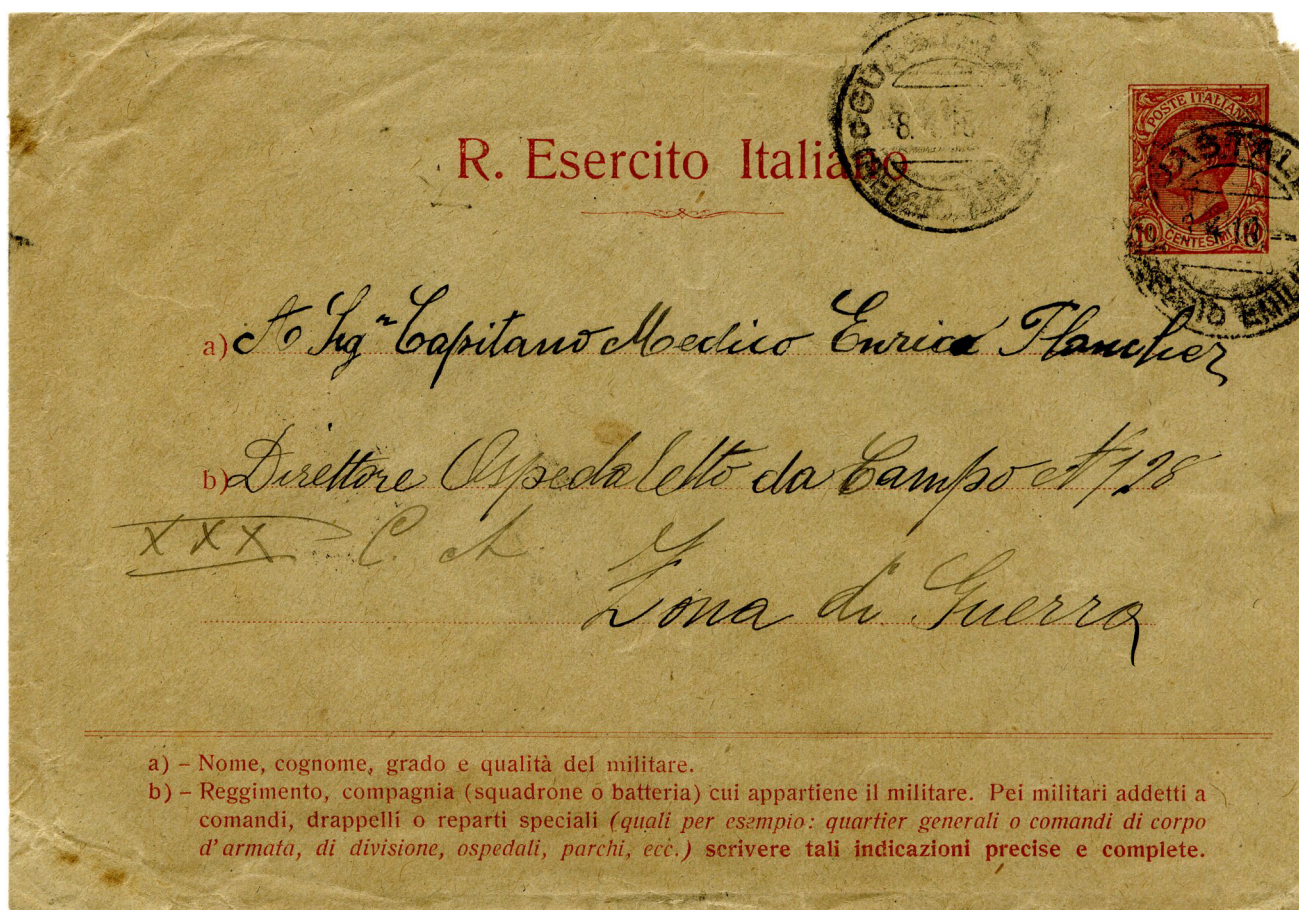 POSTE ITALIANE
10 CENTESIMI 10
R. Esercito Italiano
a) A Sigr Capitano Medico Enrico Plancher
b) Direttore Ospedaletto da Campo N 128
XXX C. A.
Zona di Guerra
a) – Nome, cognome, grado e qualità del militare.
b) – Reggimento, compagnia (squadrone o batteria) cui appartiene il militare. Pei militari addetti a
comandi, drappelli o reparti speciali (quali per esempio: quartier generali o comandi di corpo
d'armata, di divisione, ospedali, parchi, ecc.) scrivere tali indicazioni precise e complete.